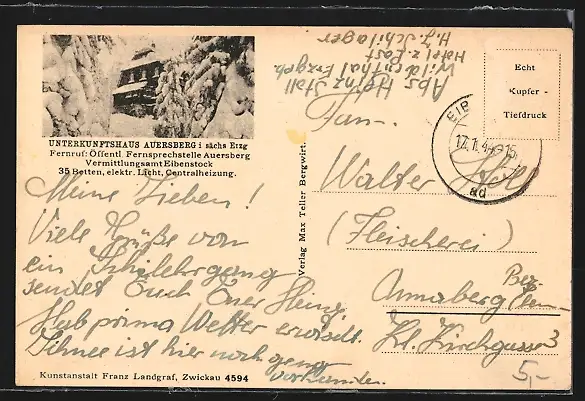 UNTERKUNFTSHAUS AUERSBERG i sächs Erzg
Fernruf: Öffentl. Fernsprechstelle Auersberg
Vermittlungsamt Eibenstock
35 Betten, elektr. Licht, Centralheizung.
Meine Lieben!
Viele Grüße von
ein Schilehrgang
sendet Euch Euer Heinz,
Hab prima Wetter erwischt.
Schnee ist hier noch genug
vorhanden.
Kunstanstalt Franz Landgraf, Zwickau 4594
Verlag Max Teller Bergwirt.
Abs Heinz Stoll
Wildenthal Erzgeb.
Hotel z. Post
H.J. Schilager
Echt
Kupfer-
Tiefdruck
EIB
17.1.4 -15
Fam.
Walter Stoll
(Fleischerei)
Annaberg
Kl. Kirchgasse 3
5,-